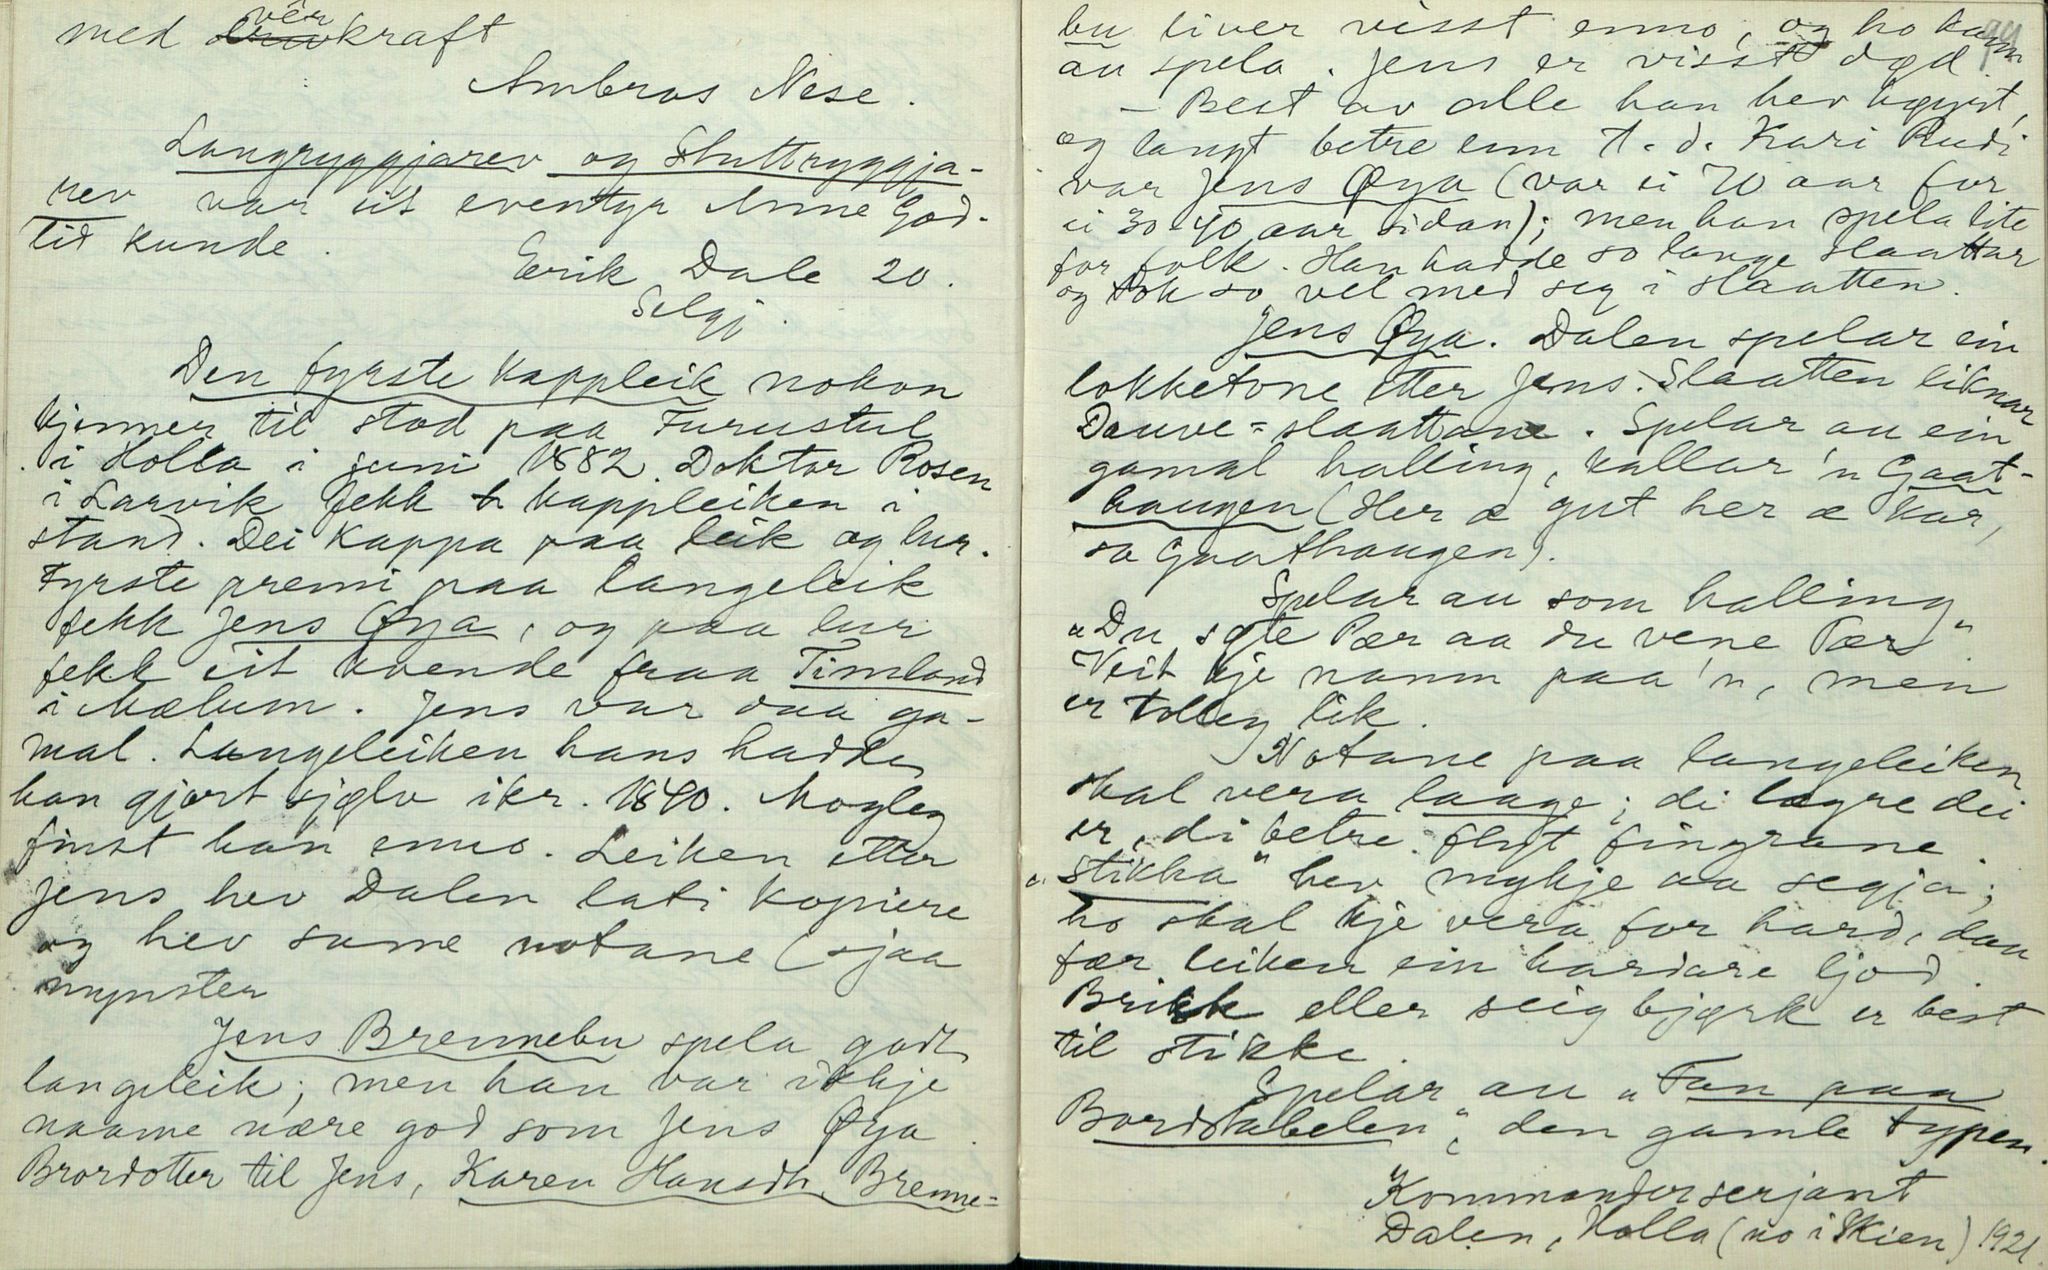 vêr
med kraft
Ambros Nese.
Langryggjarev og Stuttryggja-
rev var eit eventyr Anne God-
tid kunde.
Eerik Dale 20.
Selgj.
Den fyrste kappleik nokon
kjenner til stod paa Furustul
i Holla i juni 1882. Doktor Rosen
i Larvik fekk kappleiken i
stand. Dei kappa paa leik og lur.
Fyrste premi paa langeleik
fekk Jens Øya, og paa lur
fekk eit kvende fraa Timland
i Mælum. Jens var daa ga-
mal. Langeleiken hans hadde
han gjort sjølv ikr. 1840. Mogleg
finst han enno. Leiken etter
Jens hev Dalen lati kopiere
og hev same notane (sjaa
mynster
Jens Brennebu spela godt
langeleik; men han var ikkje
naame nære god som Jens Øya.
Brordotter til Jens, Karen Hansdtr. Brenne=
bu liver visst enno, og ho kann
au spela. Jens er visst død.
– Best av alle han hev høyrt,
og langt betre enn t. d. Kari Rudi
var Jens Øya (var ei 70 aar for
ei 30 40 aar sidan); men han spela lite
for folk. Han hadde so lange slaattar
og tok so vel med seg i slaatten.
Jens Øya. Dalen spelar ein
lokketone etter Jens. Slaatten liknar
Dauve=slaattane. Spelar au ein
gamal halling, kallar 'n Gaat-
haugen (Her æ gut her æ kar,
sa Gaathaugen).
Spelar au som halling
„Du søte Pær aa du vene Pær“
Veit kje namn paa 'n, men
er tolleg lik.
Notane paa langeleiken
skal vera laage; di lægre dei
er, di betre fløt fingrane.
„Stikka“ hev mykje aa segja;
ho skal kje vera for hard, daa
fær leiken ein hardare ljod.
Brikk eller seig bjørk er best
til stikke.
Spelar au „Fan paa
Bordstabelen“, den gamle typen.
Kommandersersjant
Dalen, Holla (no i Skien) 1921.